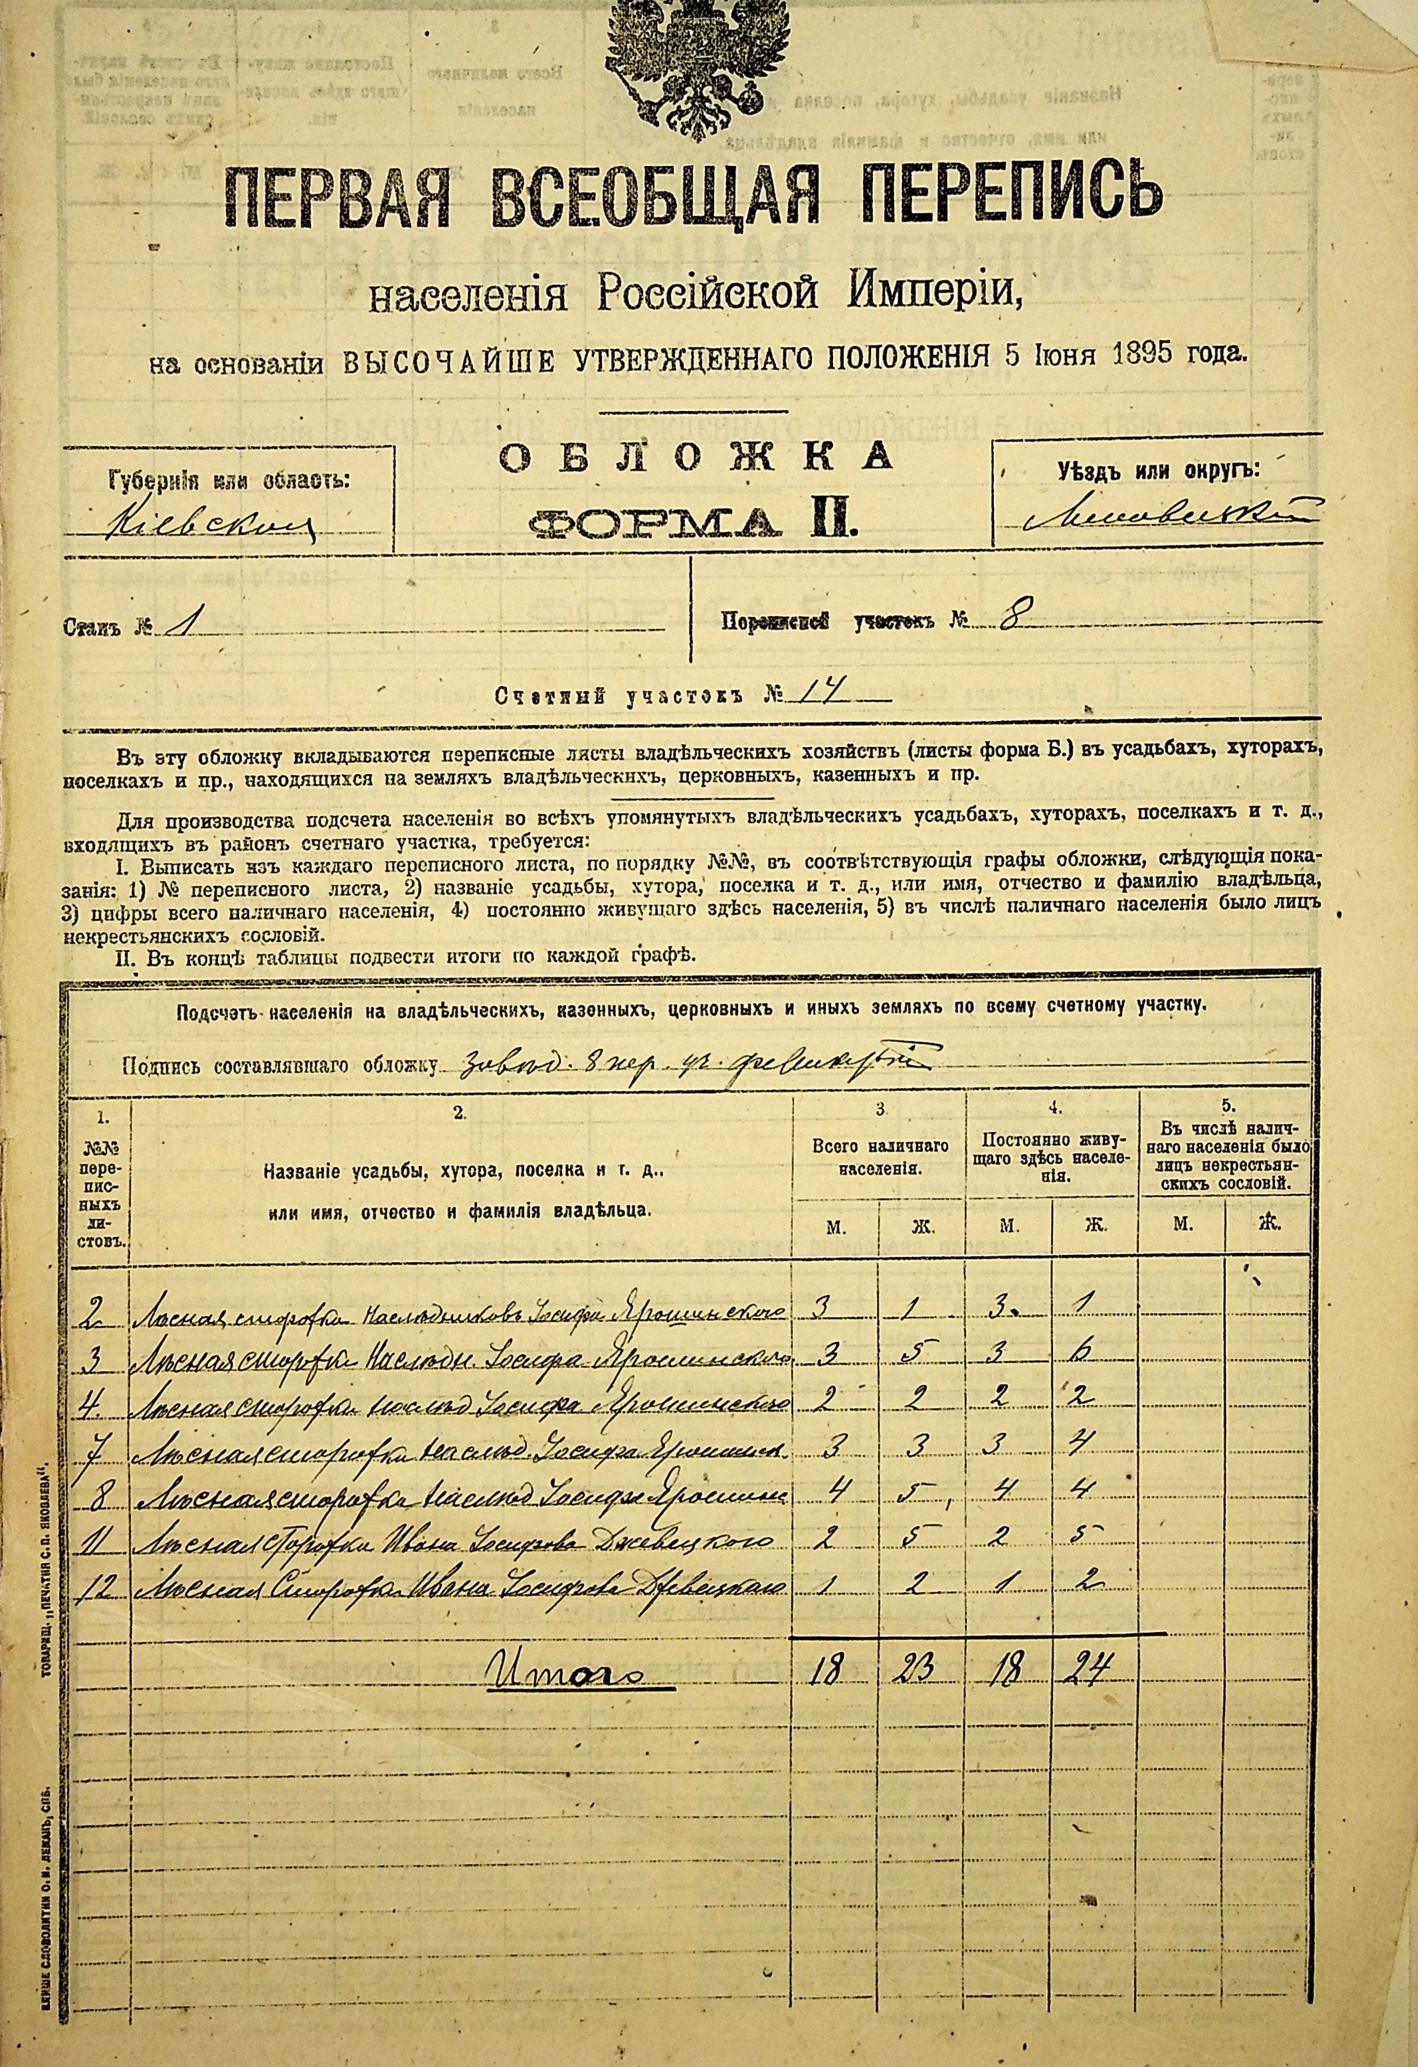 ПЕРВАЯ ВСЕОБЩАЯ ПЕРЕПИСЬ
населенія Россійской Имперіи,
на основаніи ВЫСОЧАЙШЕ УТВЕРЖДЕННАГО ПОЛОЖЕНІЯ 5 Іюня 1895 года.
ОБЛОЖКА
ФОРМА II.
Губернія или область:
Кіевская
Уѣздъ или округъ:
Липовецкій
Станъ № 1
Переписной участокъ № 8
Счетный участокъ № 14
Въ эту обложку вкладываются переписные листы владѣльческихъ хозяйствъ (листы форма Б.) въ усадьбахъ, хуторахъ,
поселкахъ и пр., находящихся на земляхъ владѣльческихъ, церковныхъ, казенныхъ и пр.
Для производства подсчета населенія во всѣхъ упомянутыхъ владѣльческихъ усадьбахъ, хуторахъ, поселкахъ и т. д.,
входящихъ въ районъ счетнаго участка, требуется:
I. Выписать изъ каждаго переписного листа, по порядку №№, въ соотвѣтствующія графы обложки, слѣдующія пока-
занія: 1) № переписного листа, 2) названіе усадьбы, хутора, поселка и т. д., или имя, отчество и фамилію владѣльца,
3) цифры всего наличнаго населенія, 4) постоянно живущаго здѣсь населенія, 5) въ числѣ наличнаго населенія было лицъ
некрестьянскихъ сословій.
II. Въ концѣ таблицы подвести итоги по каждой графѣ.
Подсчетъ населенія на владѣльческихъ, казенныхъ, церковныхъ и иныхъ земляхъ по всему счетному участку.
Подпись составлявшаго обложку Завѣд. 8 пер. уч.
1. 2. 3 4. 5.
№№ пере-писныхъ листовъ.
Названіе усадьбы, хутора, поселка и т. д.,
или имя, отчество и фамилія владѣльца.
Всего наличнаго населенія.
Постоянно живущаго здѣсь населенія.
Въ числѣ наличнаго населенія было лицъ некрестьянскихъ сословій.
М. Ж. М. Ж. М. Ж.
2 Лѣсная сторожка Наслѣдниковъ Іосифа Ярошинскаго 3 1 3 1
3 Лѣсная сторожка Наслѣдн. Іосифа Ярошинскаго 3 5 3 6
4. Лѣсная сторожка Наслѣд Іосифа Ярошинскаго 2 2 2 2
7 Лѣсная сторожка Наслѣд. Іосифа Ярошинск. 3 3 3 4
8 Лѣсная сторожка Наслѣд Іосифа Ярошин 4 5 4 4
11 Лѣсная сторожка Ивана Іосифова Джевецкого 2 5 2 5
12 Лѣсная Сторожка Ивана Іосифова Джевецкаго 1 2 1 2
Итого 18 23 18 24
ТОВАРИЩ. „ПЕЧАТНЯ С. П. ЯКОВЛЕВА".
КЛИШЕ СЛОВОЛИТНИ О. И. ЛЕМАНЪ, СПБ.